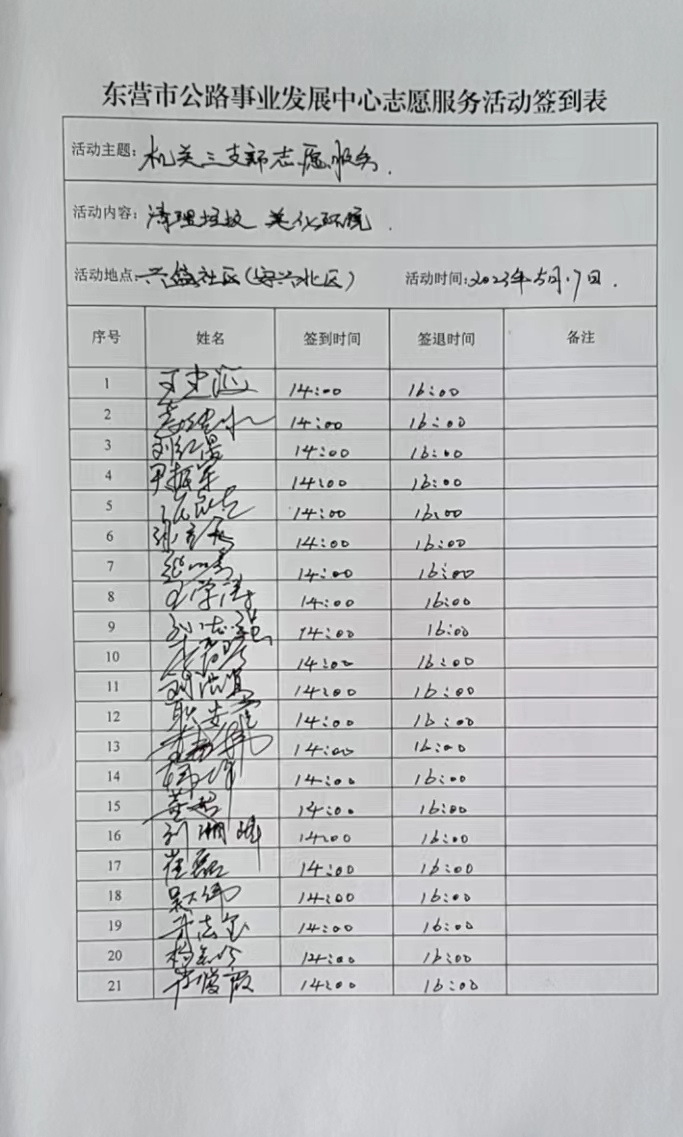 东营市公路事业发展中心志愿服务活动签到表
活动主题：机关三支部志愿服务.
活动内容：清理垃圾 美化环境.
活动地点：兴盛社区(安兴北区) 活动时间：2023年5月17日.
序号 姓名 签到时间 签退时间 备注
1 14:00 16:00
2 14:00 16:00
3 刘红霞 14:00 16:00
4 尹振军 14:00 16:00
5 14:00 16:00
6 14:00 16:00
7 14:00 16:00
8 王学涛 14:00 16:00
9 14:00 16:00
10 14:00 16:00
11 14:00 16:00
12 14:00 16:00
13 14:00 16:00
14 14:00 16:00
15 董超 14:00 16:00
16 刘湘峰 14:00 16:00
17 崔磊 14:00 16:00
18 吴伟 14:00 16:00
19 14:00 16:00
20 14:00 16:00
21 李俊霞 14:00 16:00